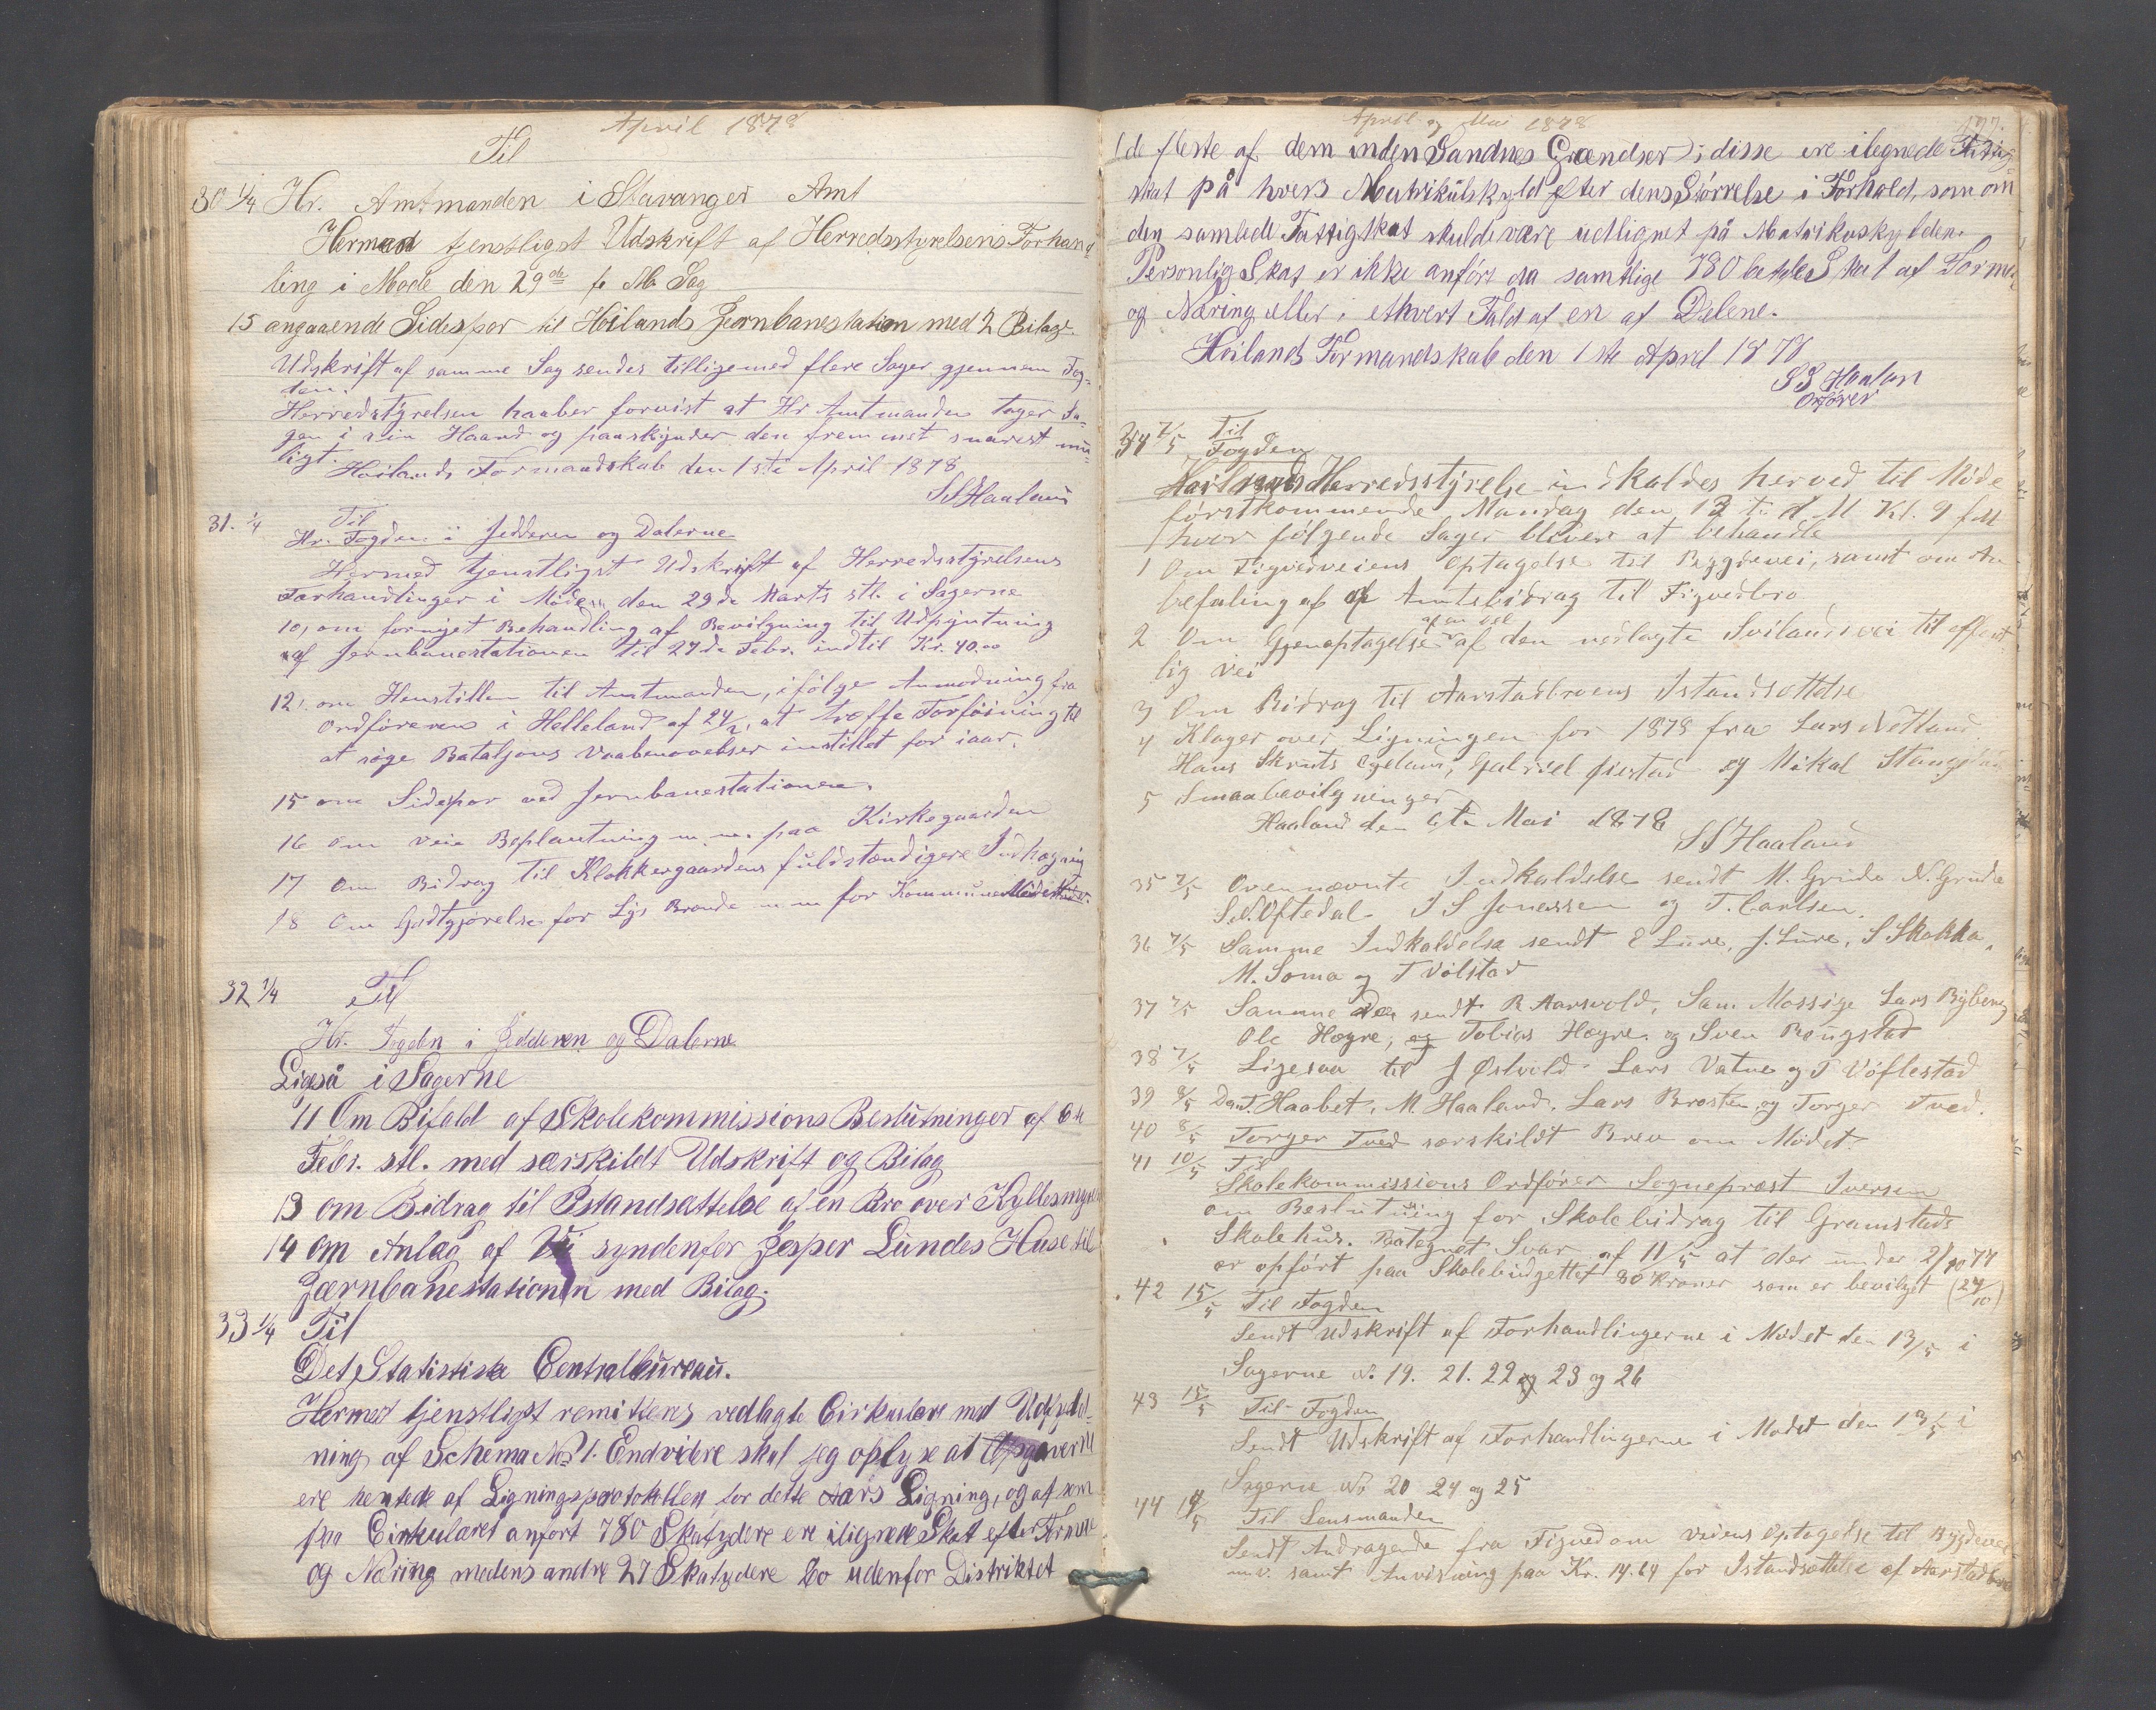 April 1878
Til
30 1/4 Hr. Amtmanden i Stavanger Amt
Hermed tjenstligst Udskrift af Herredsstyrelsens Forhand-
ling i Møde den 29de f. M. Sag
15 angaaende Sidespor til Høilands Jernbanestation med 2 Bilag.
Udskrift af samme Sag sendes tilligemed flere Sager gjennem Fog-
den.
Herredstyrelsen haaber forvist at Hr Amtmanden tager Sa-
gen i sin Haand og paaskynder den fremmet snarest mu-
ligt.
Høilands Formandskab den 1ste April 1878
SSHaaland
31. 1/4 Til
Hr. Fogden i Jedderen og Dalerne
Hermed tjenstligst Udskrift af Herredsstyrelsens
Forhandlinger i Møde den 29de Marts stl. i Sagerne
10, om fornyet Behandling af Bevilgning til Udpyntning
af Jernbanestationen til 27de Febr. indtil Kr. 40.00
12, om Henstillen til Amtmanden, ifølge Anmodning fra
Ordføreren i Helleland af 24/2, at træffe Forføining til
at søge Bataljons Vaabenøvelser instillet for iaar.
15 om Sidespor ved Jernbanestationen.
16 om Veie Beplantning m. m. paa Kirkegaarden
17 Om Bidrag til Klokkergaardens fuldstændigere Indhegning
18 Om Godtgjørelse for Lys Brænde m m for Kommunemødet
32 1/4 Til
Hr. Fogden i Jedderen og Dalerne
Ligeså i Sagerne
11 Om Bifald af Skolekommissions Beslutninger af 6te
Febr. stl. med særskildt Udskrift og Bilag
13 om Bidrag til Istandsættelse af en Bro over Kyllesmyren
14 Om Anlæg af Vei syndenfor Jesper Lundes Huse til
Jærnbanestationen med Bilag.
33 1/4 Til
Det Statistiske Centralbureau.
Hermed tjenstligst remitteres vedlagte Cirkulære med Udfyld-
ning af Schema No 1. Endvidere skal jeg oplyse at Opgaverne
ere hentede af Ligningsprotokollen for dette Aars Ligning, og at som
paa Cirkulæret anført 780 Skatydere ere ilignede Skat efter Formue
og Næring medens andre 27 Skatydere bo udenfor Distriktet
April og Mai 1878
177.
(de fleste af dem inden Sandnes Grændser); disse ere ilignede Fattig-
skat på hvers Matrikulskyld efter dens Størrelse i Forhold, som om
den samlede Fattigskat skulde være udlignet på Matrikulskylden.
Personlig Skat er ikke anført da samtlige 780 betale Skat af Formue
og Næring eller i ethvert Fald af en af Delene.
Høilands Formandskab den 1ste April 1878
SS Haaland
Ordfører
34 7/5 Til
Fogden
Høilands Herredsstyrelse indkaldes herved til Møde
førstkommende Mandag den 13te d. M Kl. 9 fM
hvor følgende Sager bliver at behandle
1 Om Figvedveiens Optagelse til Bygdevei, samt om An-
befaling af Amtsbidrag til Figvedbro
2 Om Gjenoptagelse af en Del af den nedlagte Svilandsvei til offent-
lig Vei
3 Om Bidrag til Aarstadbroens Istandsættelse
4 Klager over Ligningen for 1878 fra Lars Netland
Hans Skruts Ogelund, Gabriel Gjestad og Mikal Stangeland
5 Smaabevilgninger
Haaland den 6te Mai 1878
SSHaaland
35 7/5 Ovennævnte Indkaldelse sendt M. Grude N. Grude
S.N. Oftedal. J S Jonassen og T. Carlsen.
36 7/5 Samme Indkaldelse sendt E Lure, J. Lure, S Skokka.
M. Soma og T Vølstad
37 7/5 Samme Dag sendt R Aarsvold, Sam Mossige Lars Byberg
Ole Høgre, Tobias Høgre og Sven Raugstad
38 7/5 Ligesaa til J Østvold. Lars Vatne og T Vøflestad
39 8/5 Do T. Haabet. M Haaland. Lars Brøsten og Torger Tved.
40 8/5 Torger Tved særskildt Brev om Mødet.
41 10/5 Til
Skolekommissions Ordfører Sogneprest Iversen
om Beslutning for Skolebidrag til Gramstads
Skolehus. Betegnet Svar af 11/5 at der under 2/10 77
er opført paa Skolebudgettet 80 Kroner som er bevilget (24/10)
42 15/5 Til Fogden
Sendt Udskrift af Forhandlingerne i Mødet den 13/5 i
Sagerne No 19. 21. 22 23 og 26
43 15/5 Til Fogden
Sendt Udskrift af Forhandlingerne i Mødet den 13/5 i
Sagerne No 20 24 og 25
44 19/5 Til Lensmanden
Sendt Andragende fra Figved om Veiens Optagelse til Bygdevei
m.v. samt Anvisning paa Kr. 14.64 for Istandsættelse af Aarstadbro